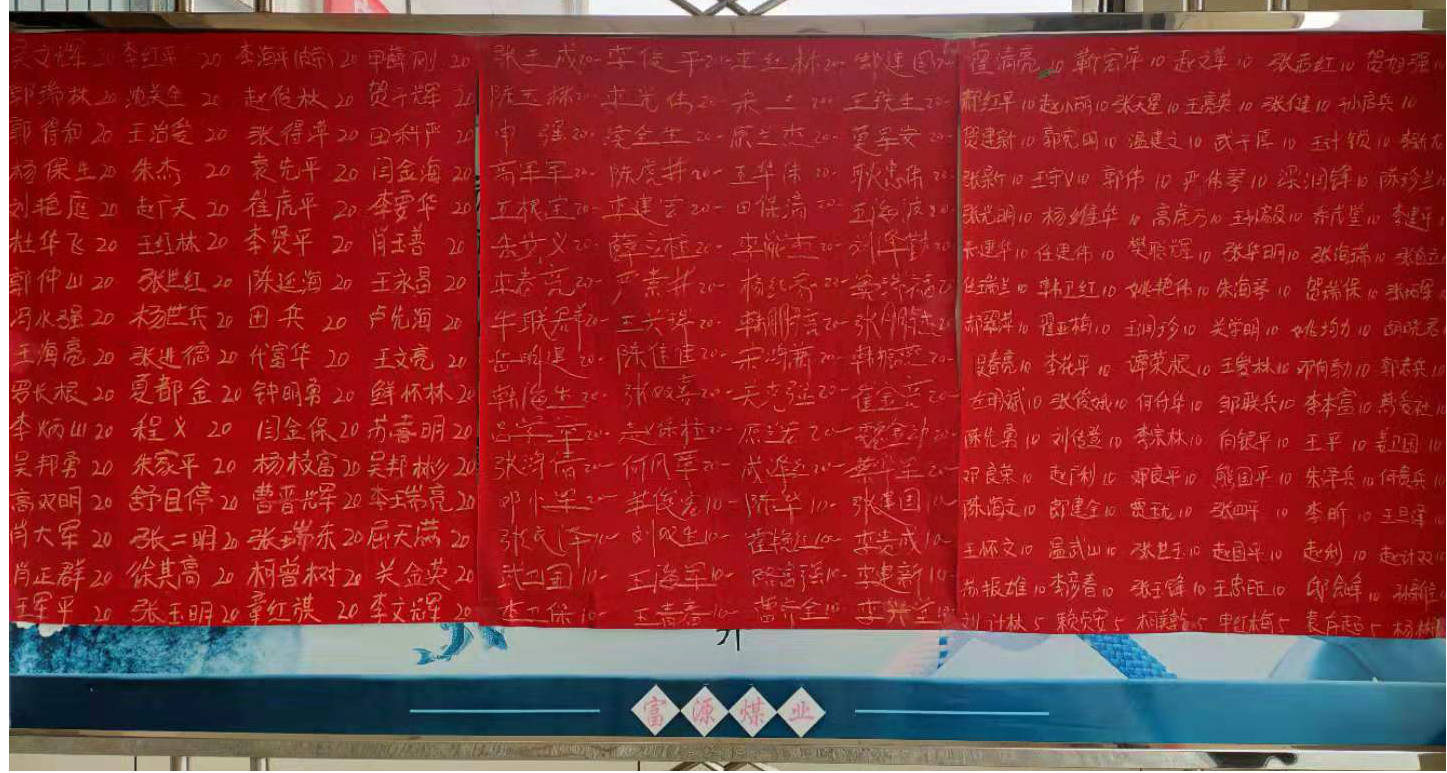 吴文辉 20 李红平 20 李海平 20 申薛刚 20
郭瑞林 20 沈关生 20 赵俊林 20 贺于辉 20
郭得和 20 王治安 20 张得华 20 田科严 20
杨保生 20 朱杰 20 袁先平 20 闫金海 20
刘艳庭 20 赵广天 20 崔虎平 20 李要华 20
杜华飞 20 王红林 20 李贤平 20 肖玉善 20
郭仲山 20 张世红 20 陈延海 20 王永昌 20
冯水强 20 杨世兵 20 田兵 20 卢先海 20
王海亮 20 张进德 20 代富华 20 王文亮 20
罗长根 20 夏都金 20 钟明勇 20 鲜怀林 20
李炳山 20 程义 20 闫金保 20 苏喜明 20
吴邦勇 20 朱家平 20 杨枝富 20 吴邦彬 20
高双明 20 舒目停 20 曹晋辉 20 李瑞亮 20
肖大军 20 张二明 20 张瑞东 20 屈天满 20
肖正群 20 徐其高 20 柯曾树 20 关金英 20
王军平 20 张玉明 20 章红旗 20 李文辉 20
张三成 20- 李俊平 20- 李红林 20- 郜建国 20-
陈玉林 20- 李光伟 20- 王铁生 20-
申强 20- 安金生 20- 原兰杰 20-
高军军 20- 陈虎井 20- 王华伟 20- 耿忠伟 20-
王根宝 20- 李建芸 20- 田保满 20- 王海波 20-
朱艾义 20- 薛立柱 20- 刘华勤 20-
李春亮 20- 严素井 20- 杨红秀 20-
牛联群 20- 王关瑞 20- 韩鹏程 20- 张鹏杰 20-
岳明退 20- 陈佳佳 20- 韩振燕 20-
韩海生 20- 张双喜 20- 关克强 20- 崔金云 20-
吕军平 20- 赵保柱 20- 原兰宏 20- 魏金动 20-
张海清 20- 何风军 20- 成海延 20- 秦华生 20-
邓小军 20- 李俊宏 10- 陈华 10- 张建国 10-
张武泽 10- 刘双生 10- 霍镜江 10- 李贵成 10-
武卫国 10- 王海军 10- 陈富强 10- 李建新 10-
李卫保 10- 王青彦 10- 曹行全 10- 李兴全 10-
翟满亮 10 靳宏華 10 赵文革 10 张志红 10 贺旭强 10
郝红平 10 赵小丽 10 张天星 10 王亮英 10 张健 10 孙启兵 10
贺建新 10 郭宪明 10 温建文 10 武千厚 10 王计锁 10
张新 10 王守义 10 郭伟 10 严伟琴 10 梁润锋 10 陈珍兰 10
张光明 10 杨维华 10 高虎万 10 王瑞敏 10 乔成堂 10 李建平
乐建华 10 任建伟 10 樊聪辉 10 张华明 10 张海瑞 10
任瑞兰 10 韩卫红 10 姚艳伟 10 朱海琴 10 贺瑞保 10
郝翠萍 10 翟亚梅 10 王润珍 10 关学明 10 姚均力 10 胡晓君
段春亮 10 李花平 10 谭荣根 10 王登林 10 邓向勤 10 郭志兵 10
左明斌 10 张俊娥 10 何付华 10 邹联兵 10 李本富 10
陈先勇 10 刘传兰 10 李宗林 10 向银平 10 王平 10 姜卫国 10
邓良荣 10 赵广利 10 邓良平 10 熊国平 10 朱泽兵 10 何贵兵 10
陈海文 10 郎建全 10 贾珑 10 张四平 10 李昕 10 王旦军 10
王怀文 10 温武山 10 张世玉 10 赵国平 10 赵利 10 赵计双 10
苏振雄 10 李彦春 10 张玉锋 10 王忠旺 10 郎余峰 10
刘计林 5 赖贞安 5 柯美龄 5 申红梅 5 袁有超 5 杨彬
富源煤业